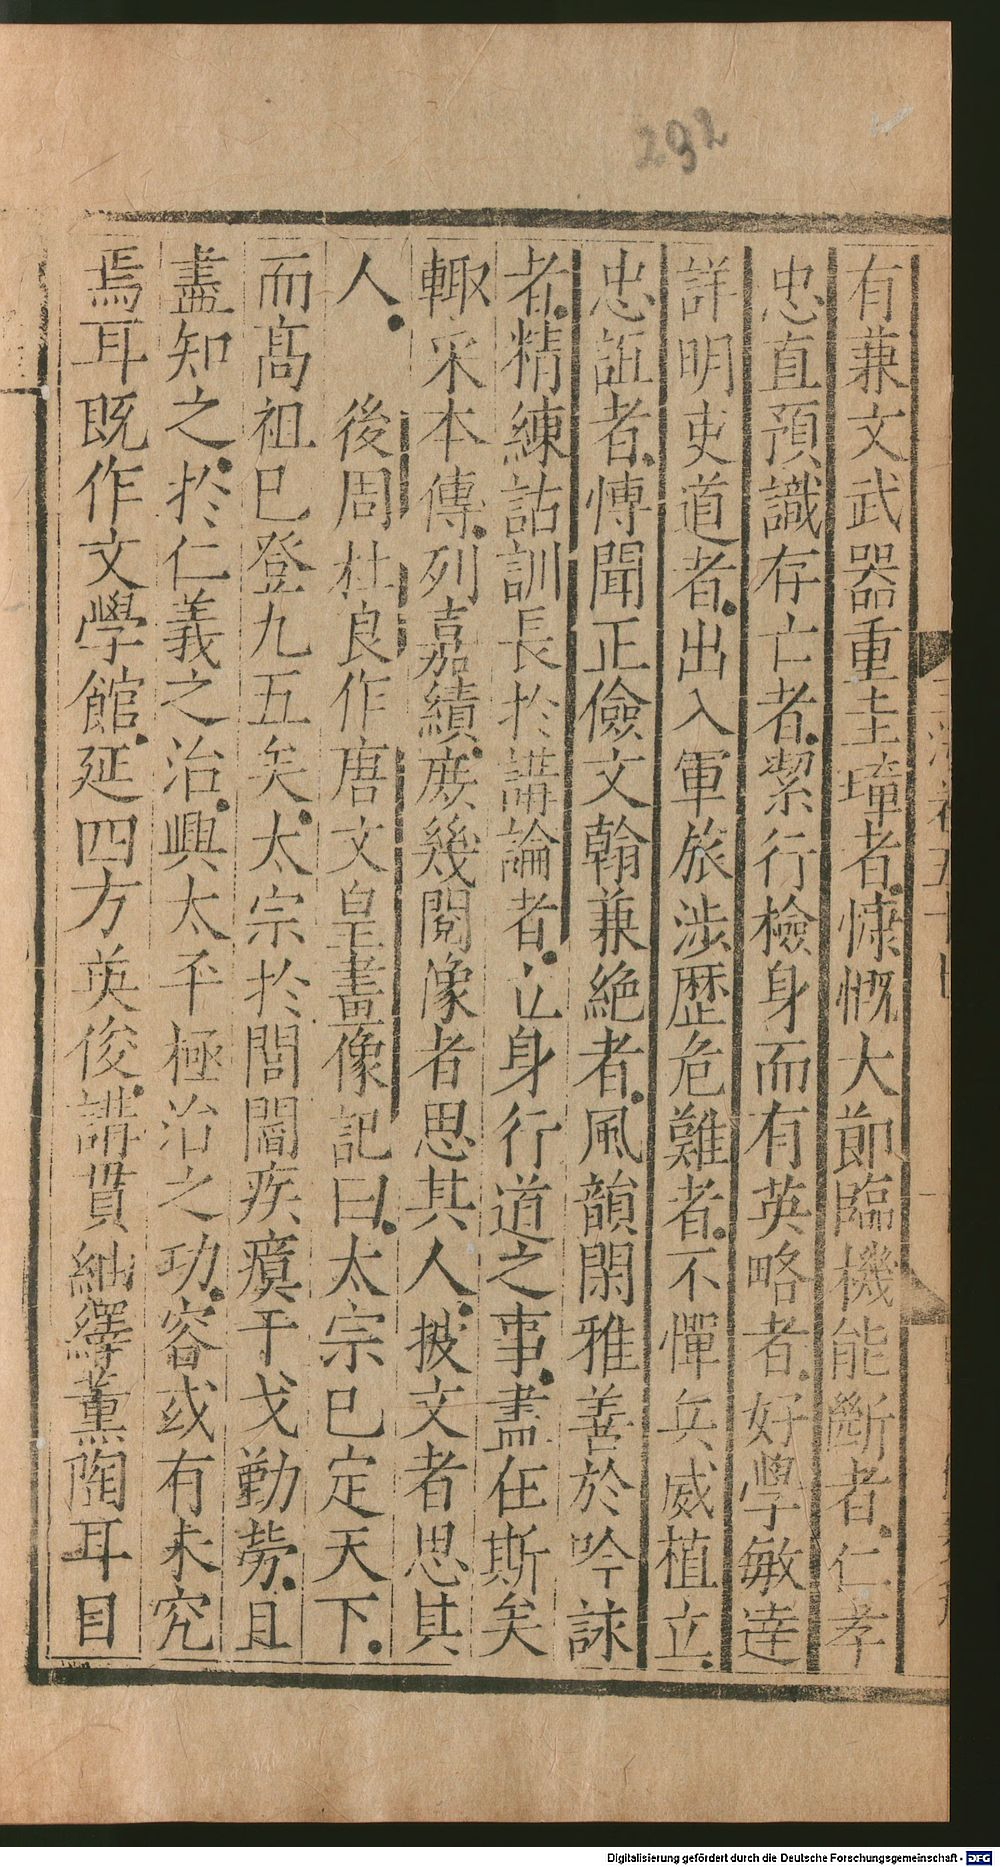 292
有兼文武器重圭璋者慷慨大節臨機能斷者仁孝
忠直預識存亡者絜行檢身而有英略者好學敏達
詳明吏道者出入軍旅涉歷危難者不憚兵威植立
忠誼者愽聞正儉文翰兼絶者風韻閑雅善於吟詠
者精練詁訓長於講論者立身行道之事盡在斯矣
輙采本傳列嘉績庻幾閱像者思其人披文者思其
人 後周杜良作唐文皇畫像記曰太宗已定天下
而髙祖已登九五矣太宗於閭閻疾瘼干戈勤勞且
盡知之於仁義之治興太平極治之功容或有未究
焉耳既作文學館延四方英俊講貫紬繹薰陶耳目
Digitalisierung gefördert durch die Deutsche Forschungsgemeinschaft - DFG